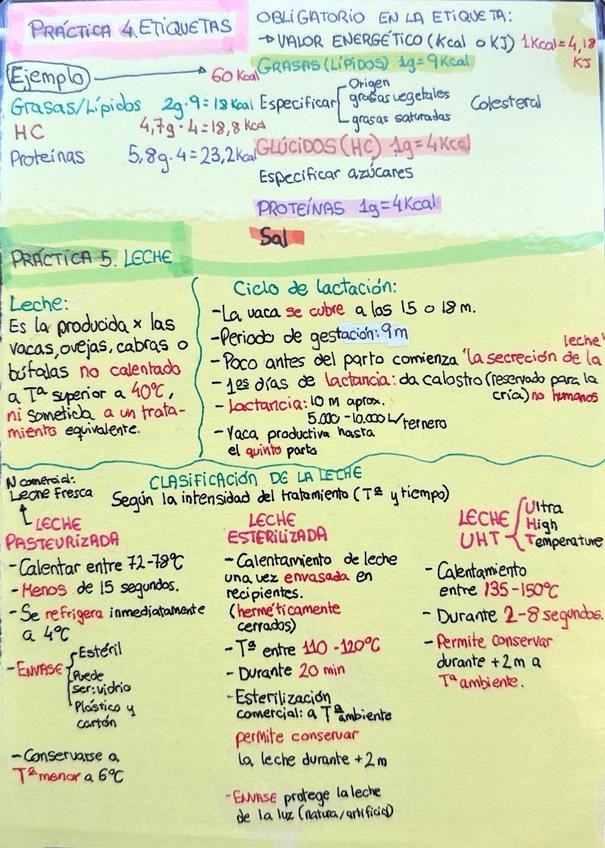 PRÁCTICA 4. ETIQUETAS
Ejemplo → 60 Kcal
Grasas/Lípidos 2g·9=18Kcal
HC 4,7g·4=18,8 Kcal
Proteínas 5,8g·4=23,2Kcal
OBLIGATORIO EN LA ETIQUETA:
→ VALOR ENERGÉTICO (Kcal o KJ) 1Kcal=4,18
KJ
GRASAS (LÍPIDOS) 1g=9Kcal
Especificar
Origen
grasas vegetales
grasas saturadas
Colesteral
GLÚCIDOS (HC) 1g=4Kcal
Especificar azúcares
PROTEÍNAS 1g=4Kcal
Sal
PRÁCTICA 5. LECHE
Leche:
Es la producida x las
vacas, ovejas, cabras o
búfalas no calentado
a Tª superior a 40ºC,
ni sometida a un trata-
miento equivalente.
Ciclo de lactación:
- La vaca se cubre a los 15 o 18 m.
- Periodo de gestación: 9m
- Poco antes del parto comienza "la secreción de la
leche"
- 1ºs días de lactancia: da calostro (reservado para la
cría) no humanos
- Lactancia: 10 m aprox.
5.000-10.000 L/ternero
- Vaca productiva hasta
el quinto parto
CLASIFICACIÓN DE LA LECHE
Según la intensidad del tratamiento (Tª y tiempo)
N comercial:
Leche Fresca
LECHE
PASTEURIZADA
- Calentar entre 72-78ºC
- Menos de 15 segundos.
- Se refrigera inmediatamente
a 4ºC
- ENVASE
Estéril
Puede
ser: vidrio
Plástico y
cartón
- Conservarse a
Tª menor a 6ºC
LECHE
ESTERILIZADA
- Calentamiento de leche
una vez envasada en
recipientes.
(herméticamente
cerrados)
- Tª entre 110-120ºC
- Durante 20 min
- Esterilización
comercial: a Tª ambiente
permite conservar
la leche durante +2m
- ENVASE protege la leche
de la luz (natura/artificio)
LECHE
UHT
Ultra
High
Temperature
- Calentamiento
entre 135-150ºC
- Durante 2-8 segundos.
- Permite conservar
durante +2m a
Tª ambiente.